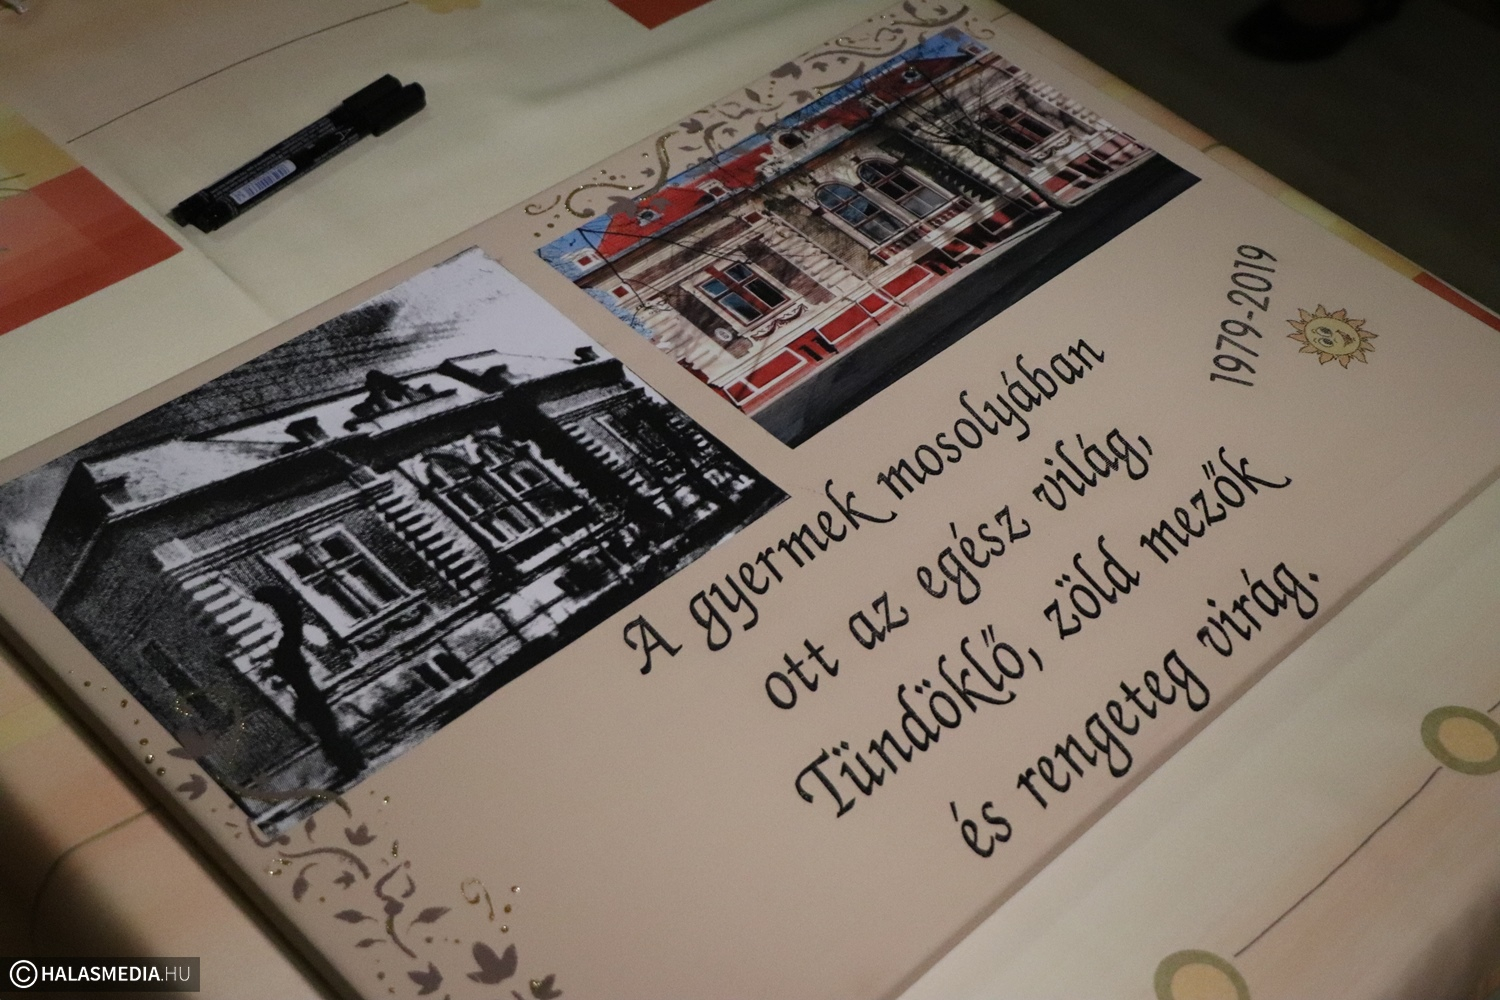 A gyermek mosolyában
ott az egész világ,
Tündöklő, zöld mezők
és rengeteg virág.
1979-2019
© HALASMEDIA.HU